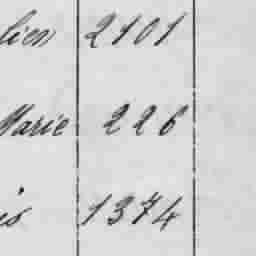 lien 2101
Marie 226
is 1374